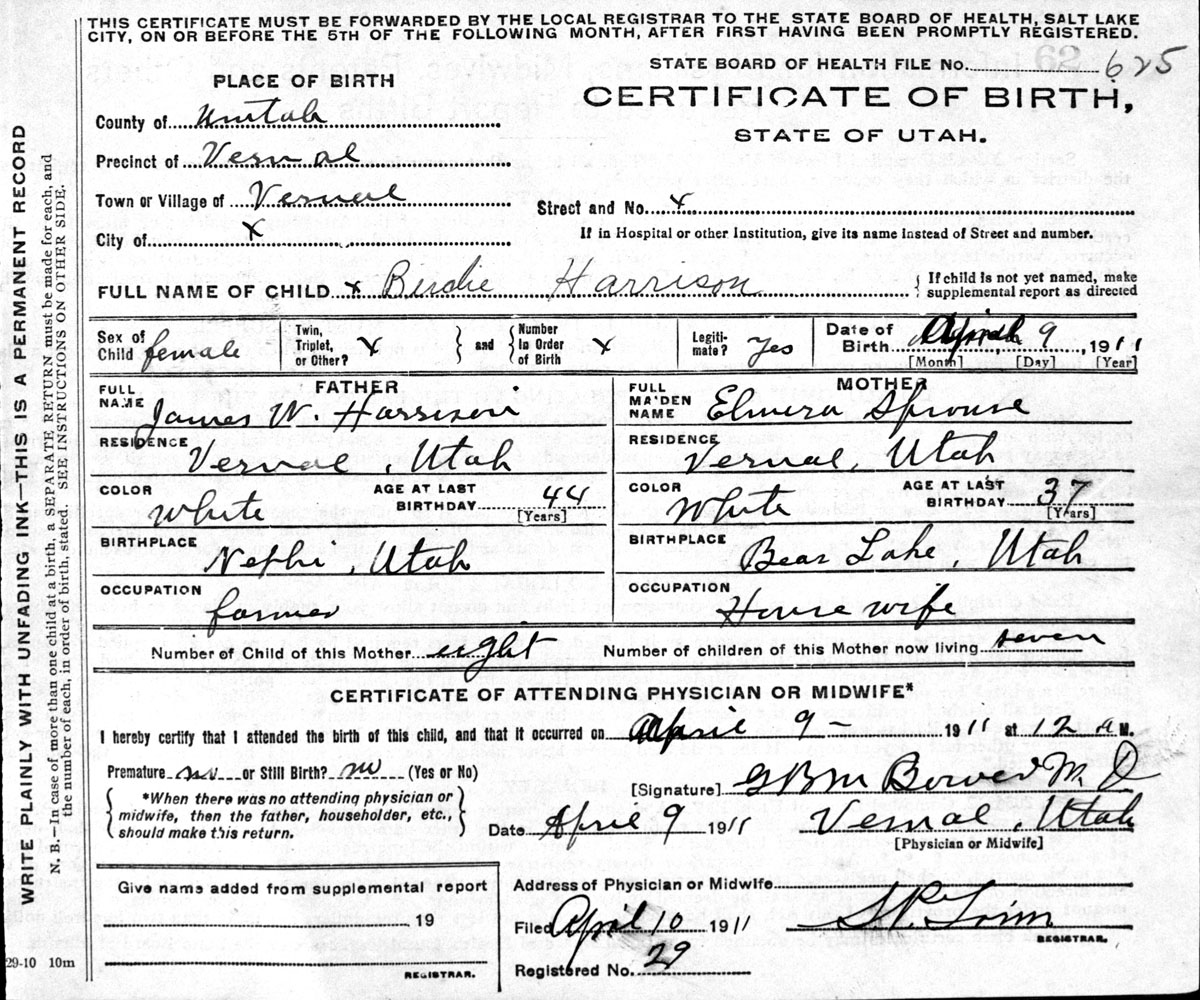 THIS CERTIFICATE MUST BE FORWARDED BY THE LOCAL REGISTRAR TO THE STATE BOARD OF HEALTH, SALT LAKE
CITY, ON OR BEFORE THE 5TH OF THE FOLLOWING MONTH, AFTER FIRST HAVING BEEN PROMPTLY REGISTERED.
STATE BOARD OF HEALTH FILE No. 625
PLACE OF BIRTH
CERTIFICATE OF BIRTH,
STATE OF UTAH.
County of Uintah
Precinct of Vernal
Town or Village of Vernal
Street and No. x
City of x
If in Hospital or other Institution, give its name instead of Street and number.
FULL NAME OF CHILD x Birdie Harrison { If child is not yet named, make supplemental report as directed
Sex of Child female Twin, Triplet, or Other? x } and { Number In Order of Birth x Legiti-mate? Yes Date of Birth April 9, 1911
[Month] [Day] [Year]
FATHER
FULL NAME James W. Harrison
RESIDENCE Vernal, Utah
COLOR White AGE AT LAST BIRTHDAY 44 [Years]
BIRTHPLACE Nephi, Utah
OCCUPATION farmer
MOTHER
FULL MAIDEN NAME Elmera Sprouse
RESIDENCE Vernal, Utah
COLOR White AGE AT LAST BIRTHDAY 37 [Years]
BIRTHPLACE Bear Lake, Utah
OCCUPATION House wife
Number of Child of this Mother eight Number of children of this Mother now living seven
CERTIFICATE OF ATTENDING PHYSICIAN OR MIDWIFE*
I hereby certify that I attended the birth of this child, and that it occurred on April 9 - 1911 at 12 a M.
Premature no or Still Birth? no (Yes or No)
[Signature] M D
{ *When there was no attending physician or
midwife, then the father, householder, etc.,
should make this return. }
Date April 9 1911 Vernal, Utah
[Physician or Midwife]
Give name added from supplemental report
19
REGISTRAR.
Address of Physician or Midwife
Filed April 10 1911
REGISTRAR.
Registered No. 29
29-10 10m
WRITE PLAINLY WITH UNFADING INK—THIS IS A PERMANENT RECORD
N. B.—In case of more than one child at a birth, a SEPARATE RETURN must be made for each, and
the number of each, in order of birth, stated. SEE INSTRUCTIONS ON OTHER SIDE.